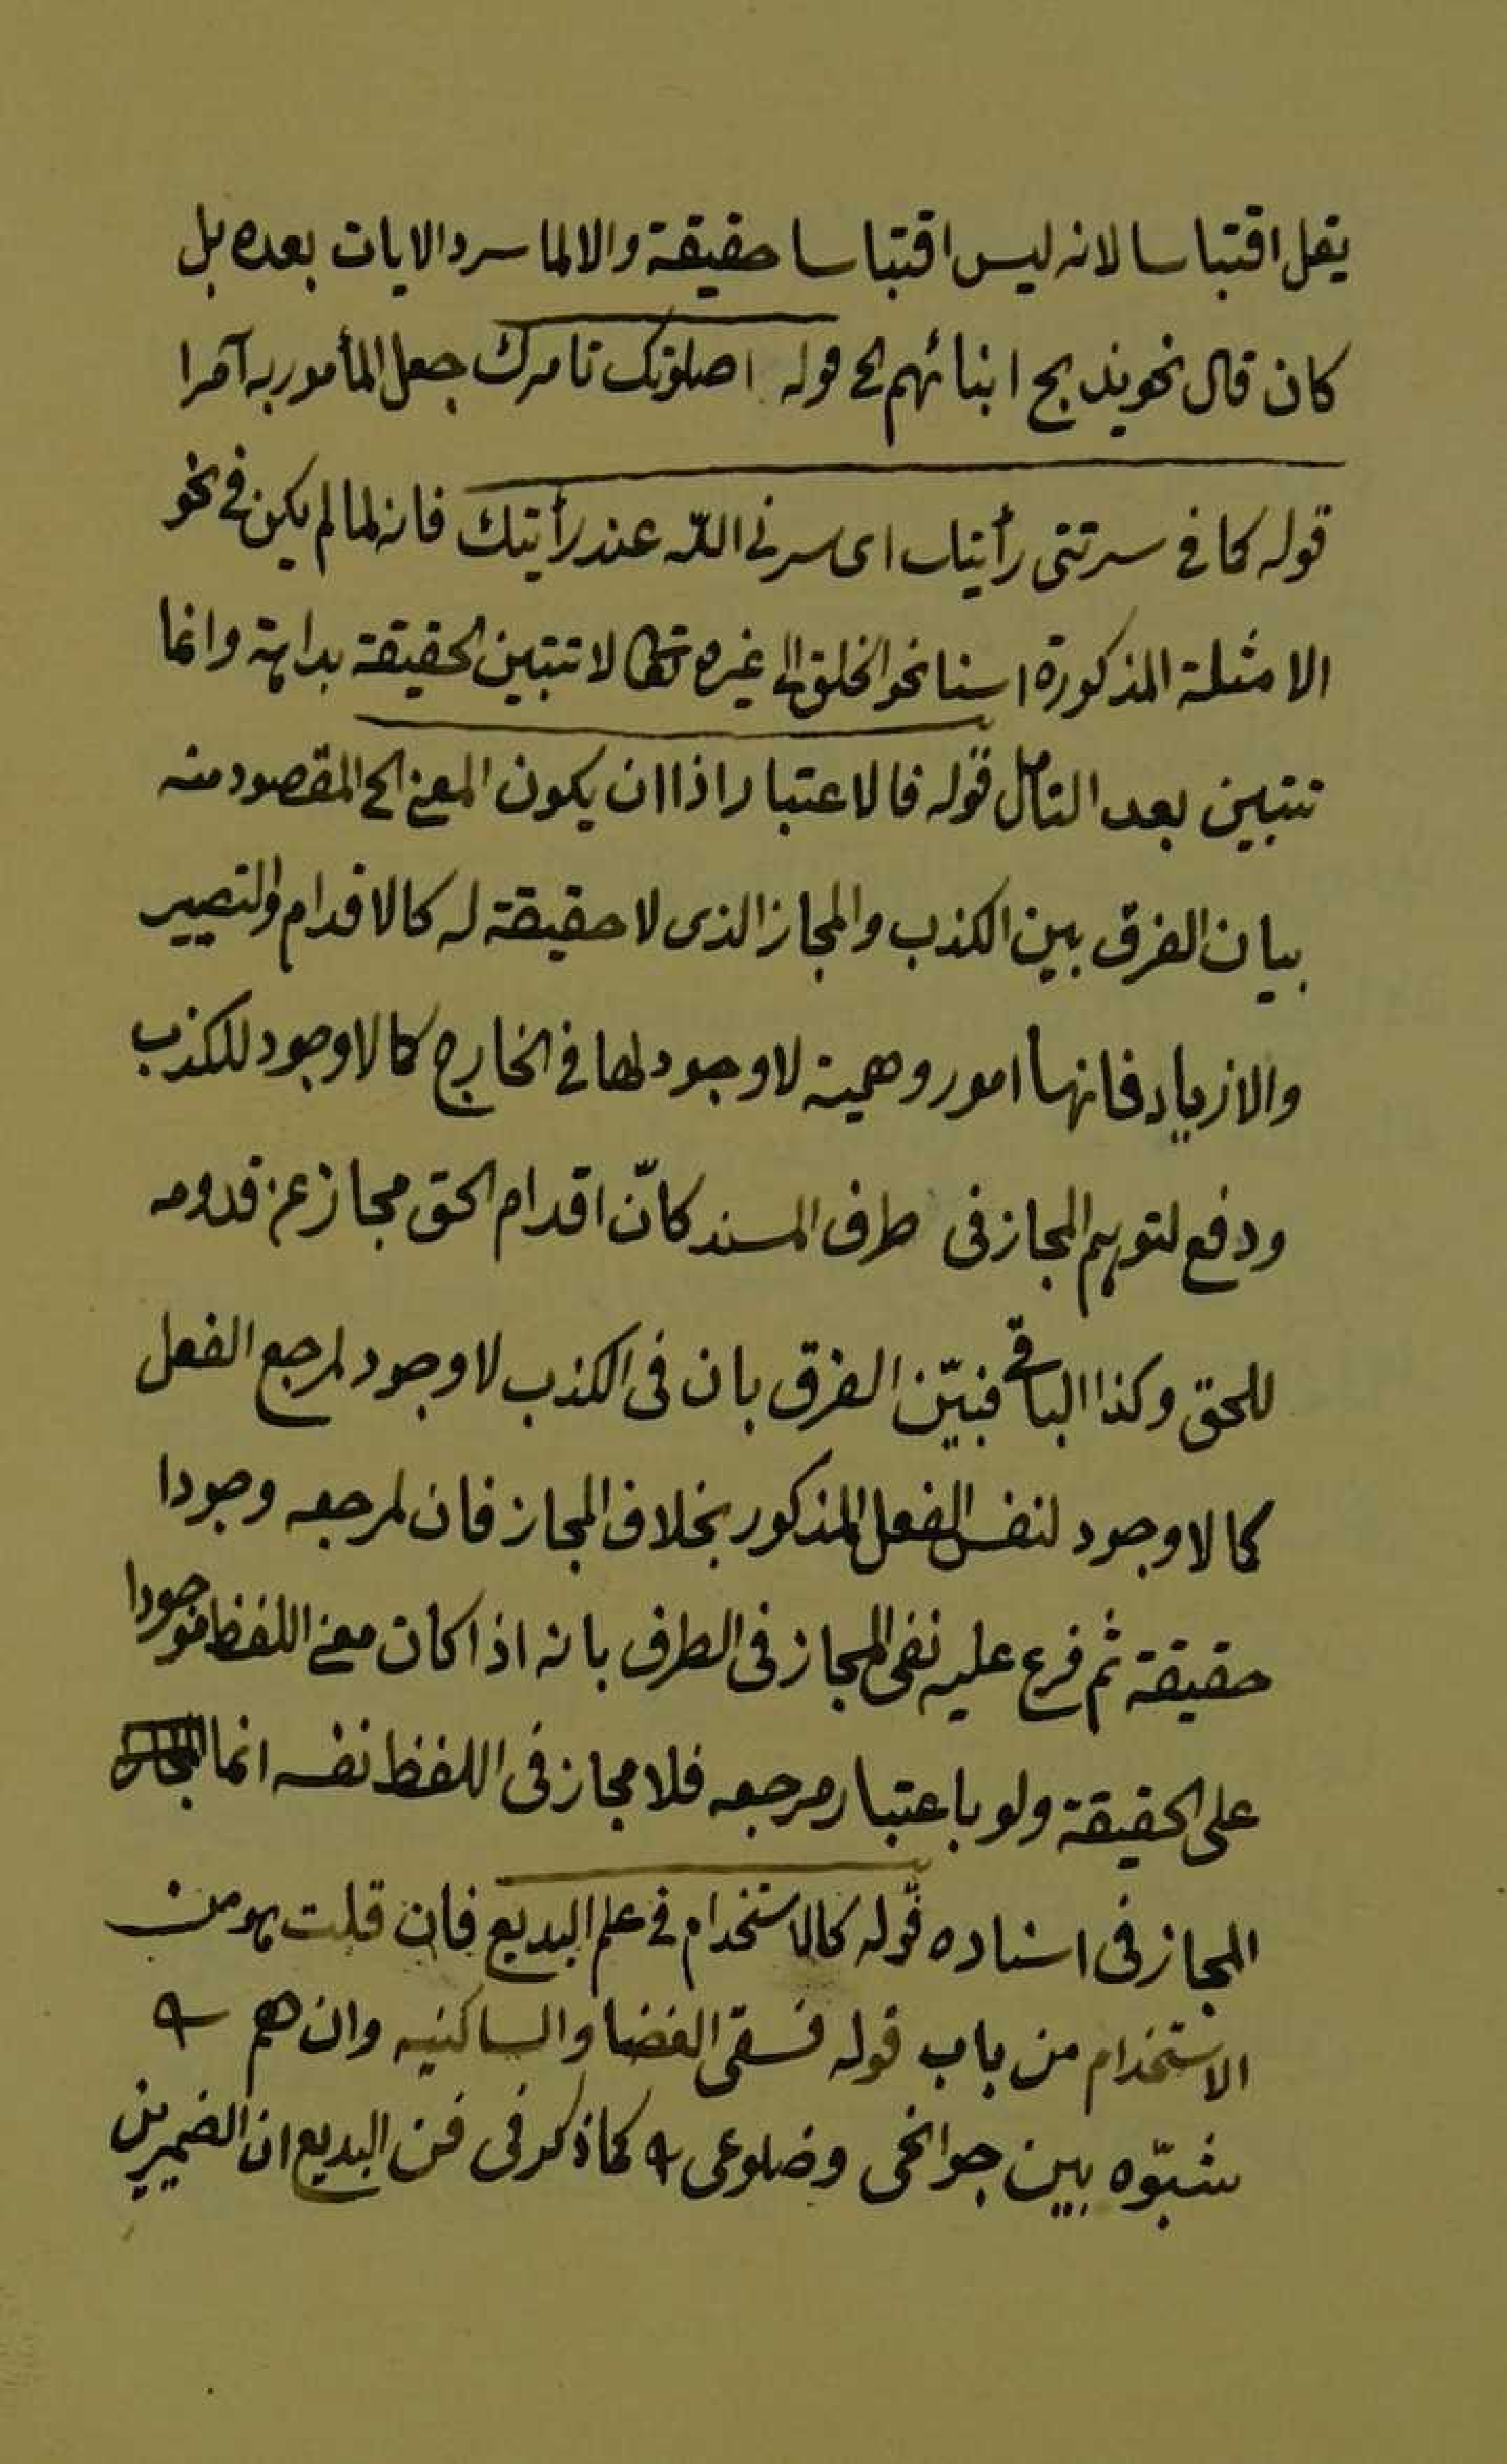 يقل اقتباسا لانه ليس اقتباسا حقيقة والا لما سرد الايات بعده بل
كان قال نحو يذبح ابنائهم الخ قوله اصلوتك تامرك جعل المأمور به آمرا
قوله كما فى سرتنى رأيتك اى سرنى الله عند رأيتك فانه لما لم يكن فى نحو
الامثلة المذكورة اسنا نحو الخلق الى غيره تعالى لا تتبين الحقيقة بداهة وانما
تتبين بعد التأمل قوله فالاعتبار اذا ان يكون المعنى الخ المقصود منه
بيان الفرق بين الكذب والمجاز الذى لا حقيقة له كالاقدام والتصيير
والازياد فانها امور وهمية لا وجود لها فى الخارج كما لا وجود للكذب
ودفع لتوهم المجاز فى طرف المسند كانّ اقدام الحق مجاز عن قدومه
للحق وكذا الباقى فبيّن الفرق بان فى الكذب لا وجود لمرجع الفعل
كما لا وجود لنفس الفعل المذكور بخلاف المجاز فان لمرجعه وجودا
حقيقة ثم فرع عليه نفى المجاز فى الطرف بانه اذا كان معنى اللفظ موجودا
على الحقيقة ولو باعتبار مرجعه فلا مجاز فى اللفظ نفسه انما
المجاز فى اسناده قوله كالاستخدام فى علم البديع فان قلت هو من
الاستخدام من باب قوله فسقى الغضا والساكنيه وان هم
شبّوه بين جوانحى وضلوعى كما ذكر فى فن البديع ان الضميرين